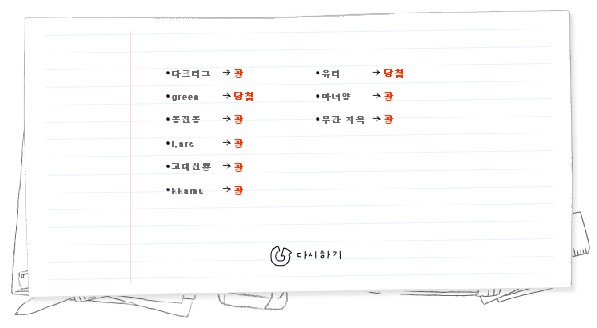 •다크리그 → 꽝
•green → 당첨
•종진종 → 꽝
•l,arc → 꽝
•고대신룡 → 꽝
•kkamu → 꽝
•유리 → 당첨
•마녀양 → 꽝
•무간 지옥 → 꽝
다시하기